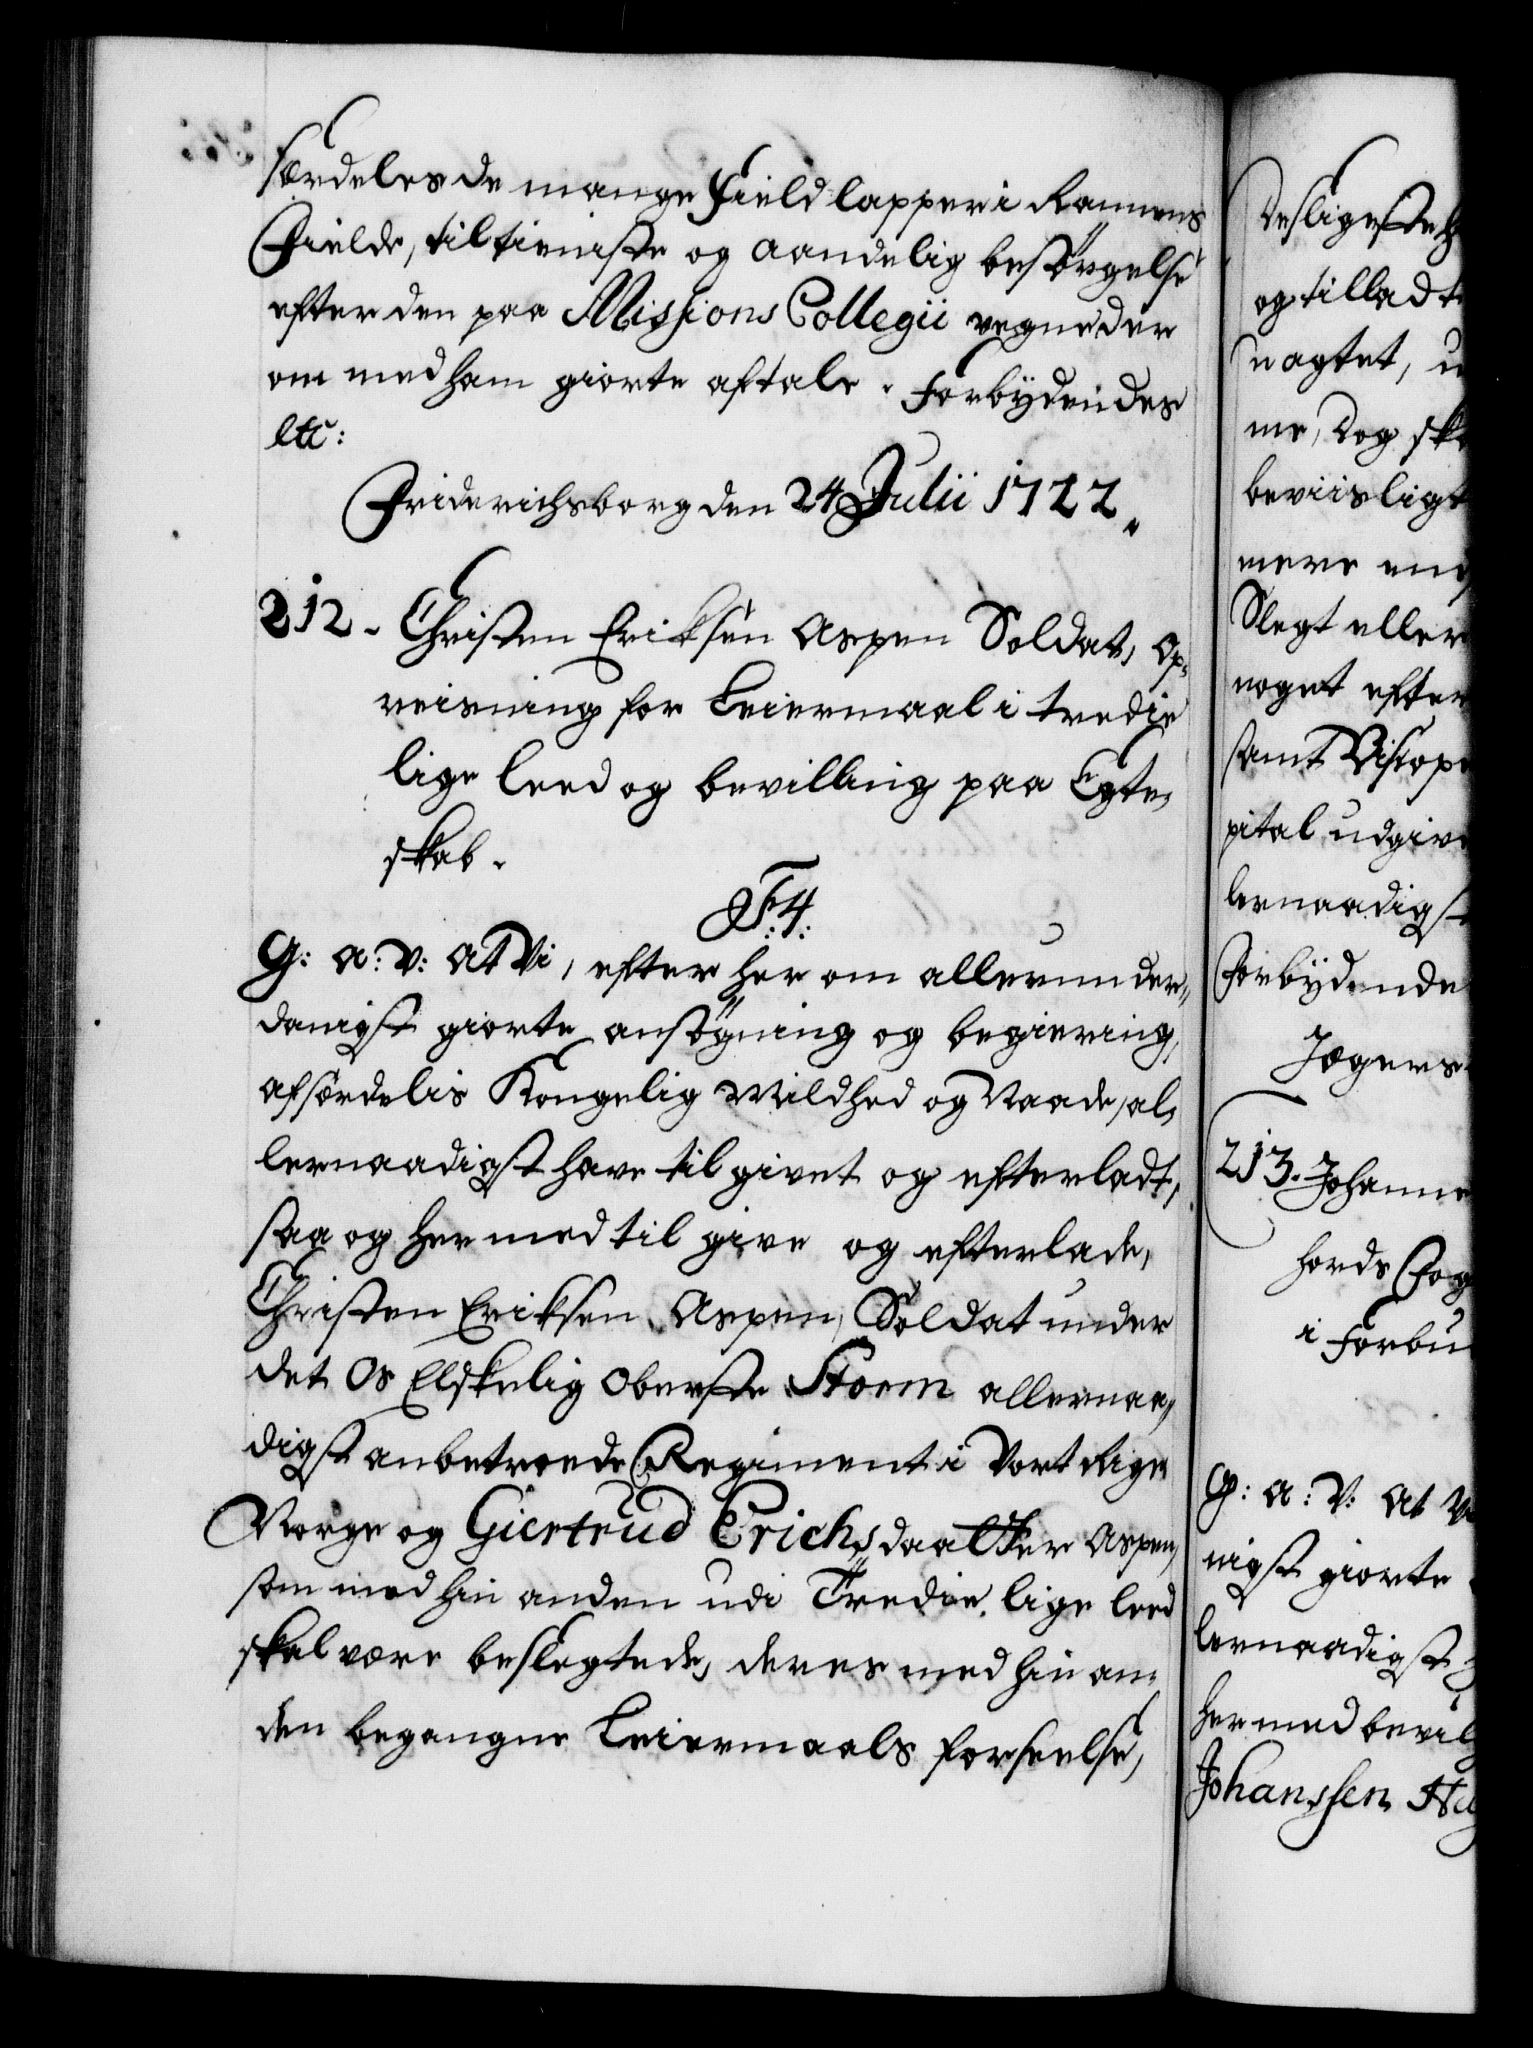 særdeles de mange Field lapper i Rannens
Fielde, til tieniste og aandelig besørgelse
efter den paa Missions Collegii vegne der
om med ham giorte aftale. Forbydendes
etc:
Friderichsborg den 24 Julii 1722.
212. Christen Eriksen Aspen Soldat, Op-
reisning for Leiermaal i tredie
lige leed og bevilling paa Egte-
skab.
F: 4:
G: A: V: At Vi, efter her om allerunder-
danigst giorte ansøgning og begiering,
af sørdelis Kongelig Mildhed og Naade, al-
lernaadigst have tilgivet og efterladt,
saa og hermed til give og efterlade,
Christen Eriksen Aspen, Soldat under
det Os Elskelig Oberste Storm allernaa-
digst anbetroede Regiment i Vort Rige
Norge og Giertrud Erichsdaatter Aspen,
som med hin anden udi Tredie lige leed
skal være beslegtede, deres med hin an-
den begangne Leiermaals forseelse,
Desligeste h
og tilladt
uagtet, u
me, Dog sk
beviisligt
mere end
Slegt eller
noget efter
samt Biscope
pital udgive
lernaadigst
Forbydende
Jægers
213. Johanne
hords Fog
i Forbu
G: A: V: At V
nigst giorte
lernaadigst
hermed bevilg
Johanssen